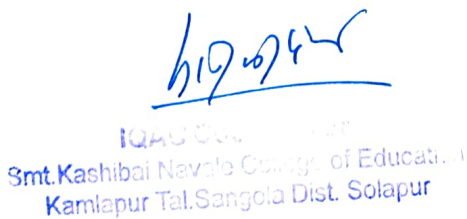 IQAC
Smt.Kashibai Navale College of Education
Kamlapur Tal.Sangola Dist. Solapur